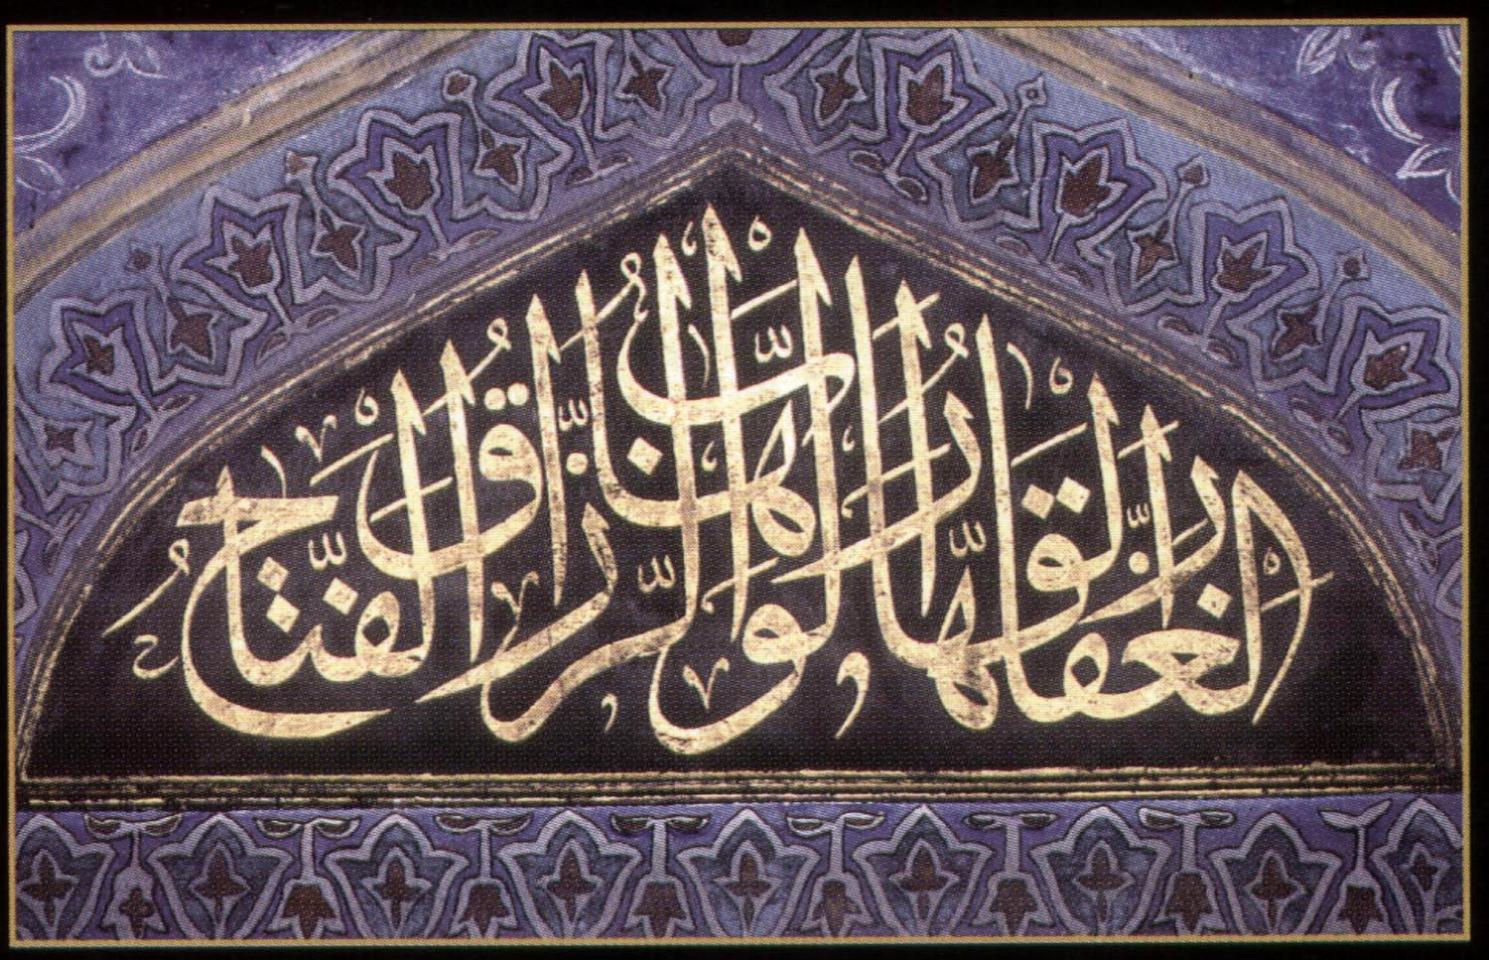 الغَفَّارُ القَهَّارُ الوَهَّابُ الرَّزَّاقُ الفَتَّاحُ